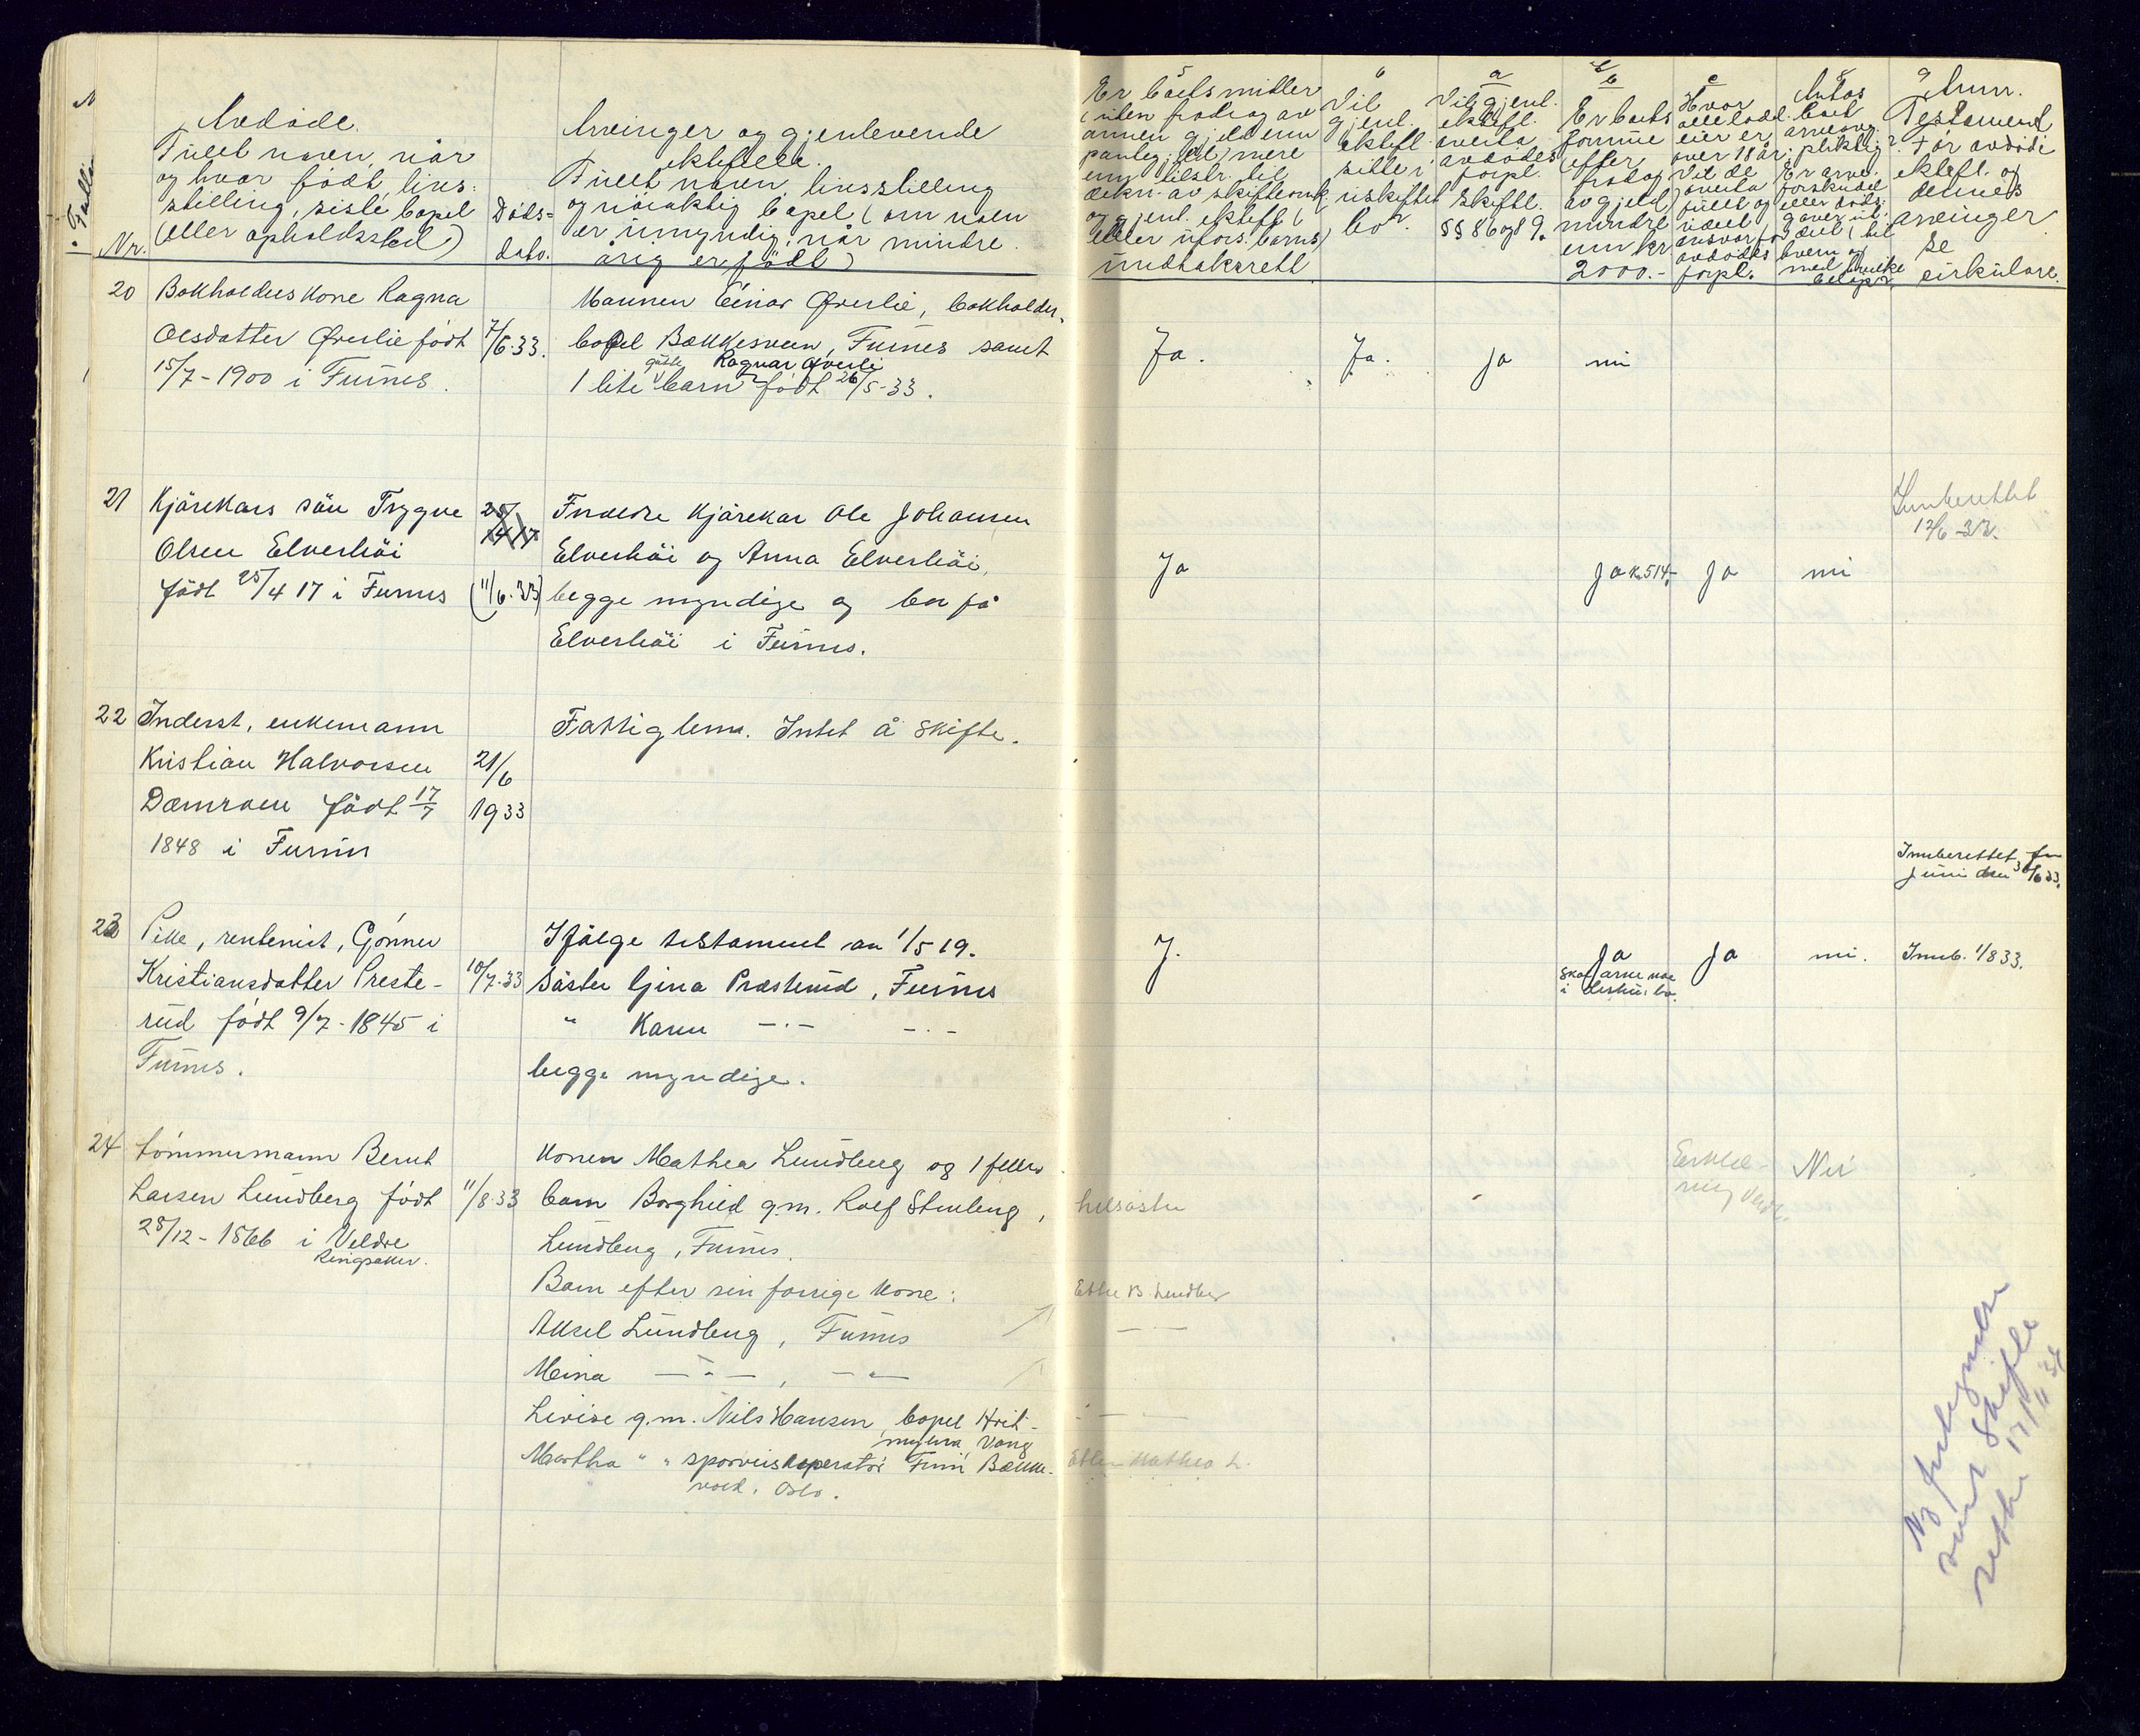 Nr.
Avdøde.
Fullt navn, når
og hvor født, livs-
stilling, siste bopel
(eller opholdssted)
Døds-
dato.
Arvinger og gjenlevende
ektefelle.
Fullt navn, livsstilling
og nøiaktig bopel (om noen
er umyndig, når mindre-
årig er født)
Er boets midler
(uten fradrag av
annen gjeld enn
pantegjeld) mere
enn tilstr. til
dekn. av skifteomk.
og gjenl. ektefl. (
eller ufors. barns)
undtaksrett
Vil
gjenl.
ektefl.
sitte i
uskiftet
bo?
a
Vil gjenl.
ektefl.
overta
avdødes
forpl.
Skiftl.
§§ 86 og 89.
b
Er boets
formue
(efter
fradrag
av gjeld)
mindre
enn kr.
2000.-
c
Hvor
eier er
over 18 år:
Vil de
overta
fullt og
udelt
ansvar for
avdødes
forpl.
Antas
boet
arveavg.
pliktig?
Er arve-
forskudd
eller døds-
gaver ut-
delt (til
hvem og
med hvilke
beløp?
Anm.
Testament,
Før avdøde
ektefl. og
dennes
arvinger
Se
cirkulære.
20
Bokholders kone Ragna
Olsdatter Øverlie født
15/7 - 1900 i Furnes.
7/6.33.
Mannen Einar Øverlie, bokholder,
bopel Bækkesveen, Furnes samt
gutte Ragnar Øverli
1 lite barn født 26/5-33.
Ja.
Ja.
ja
nei
21
Kjørekars søn Trygve
Olsen Elverhøi
født 25/4 17 i Furnes
25/
4 17
(11/6.33)
Foreldre Kjørekar Ole Johansen
Elverhøi og Anna Elverhøi,
begge myndige og bor på
Elverhøi i Furnes.
Ja
Ja Kr. 514,-
Ja
nei
Innberettet
12/6-33.
22
Inderst, enkemann
Kristian Halvorsen
Dæmroen født 17/7
1848 i Furnes
21/6
1933
Fattiglem. Intet å skifte.
Innberettet for
juni den 30/6 33.
23
Pike, rentenist, Gønner
Kristiansdatter Preste-
rud født 9/7 - 1845 i
Furnes.
10/7.33
Ifølge testament av 1/5 19.
Søster Gina Præsterud, Furnes
" Karen -·- -·-
begge myndige.
J.
Ja
skal arve noe
i uskift. bo.
Ja
nei.
Innb. 1/8 33.
24
Tømmermann Bernt
Larsen Lundberg født
28/12 - 1866 i Veldre
Ringsaker.
11/8.33
Konen Mathea Lundberg og 1 felles
barn Borghild g.m. Rolf Stenberg,
Lundberg, Furnes.
Barn efter sin forrige kone:
Aksel Lundberg, Furnes
Meina -"- , -"-
Lovise g.m. Nils Hansen, bopel Hvit-
myhra, Vang
Martha " " sporveiskoperatør Finn Bække-
vold, Oslo.
helsøster
Ethe B. Lundber
- -
Ethe Mathea L.
Erklæ-
ring
Nei